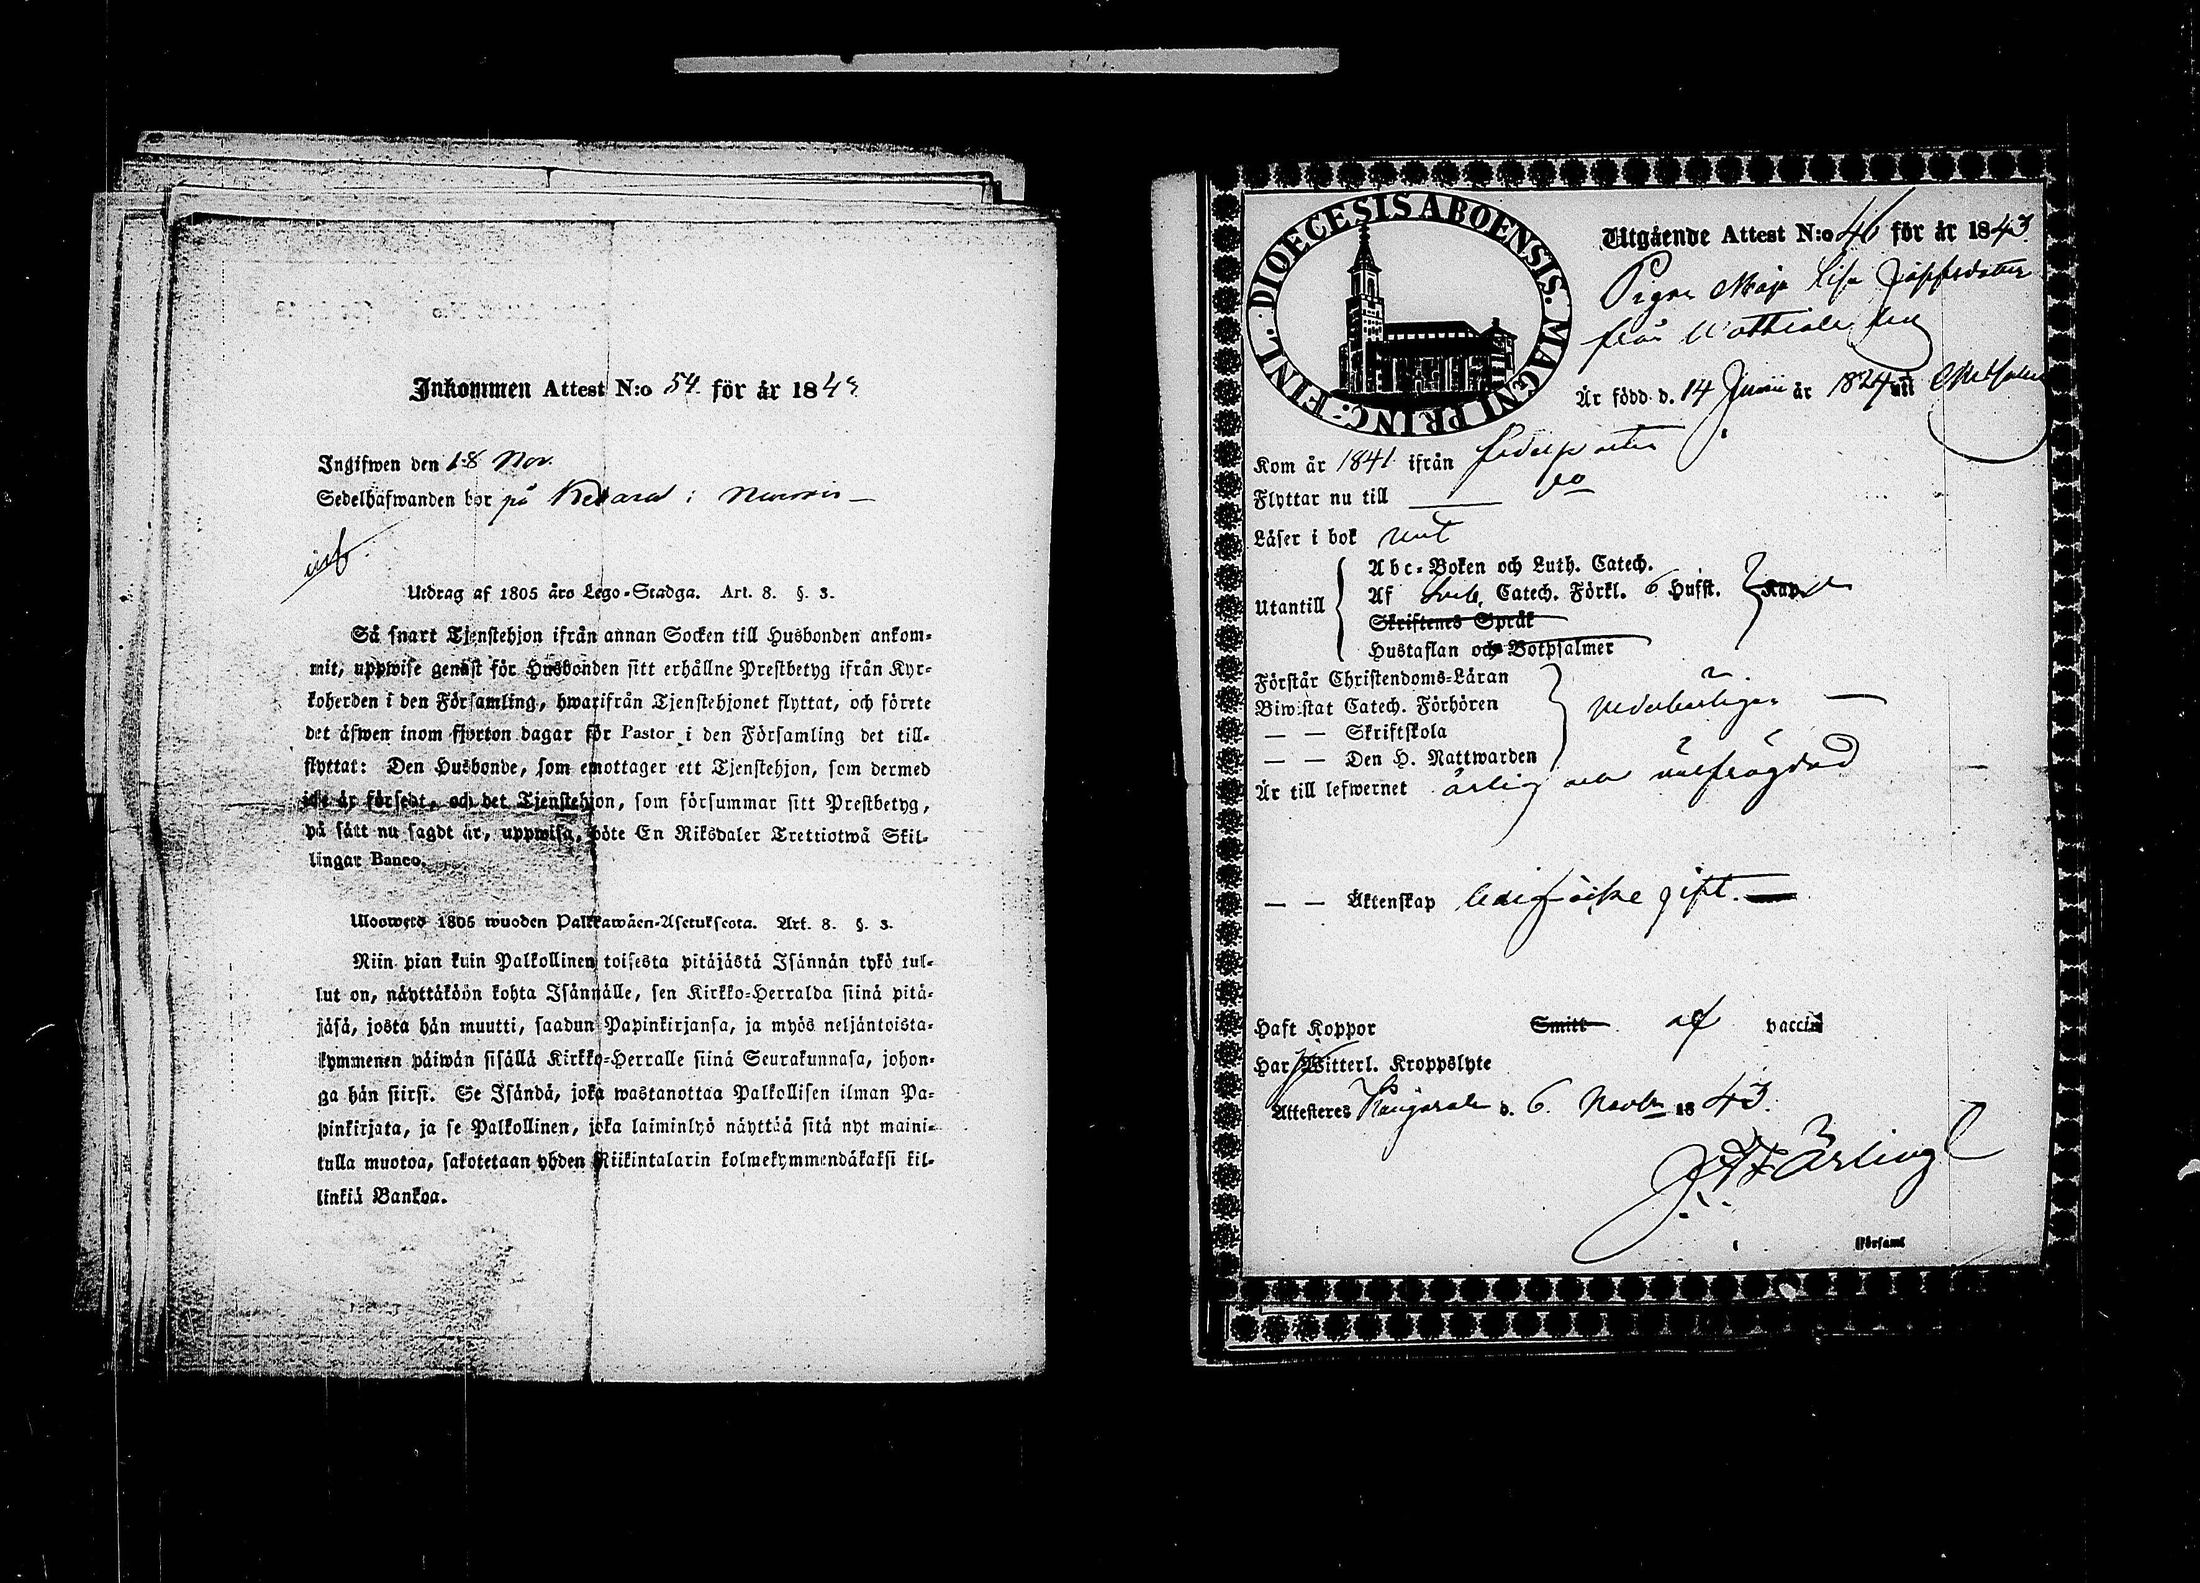 Inkommen Attest N:o 54 för år 1843
Ingifwen den 18 Nov.
Sedelhafwanden bor på i
Utdrag af 1805 års Lego-Stadga. Art. 8. §. 3.
Så snart Tjenstehjon ifrån annan Socken till Husbonden ankom-
mit, uppwise genast för Husbonden sitt erhållne Prestbetyg ifrån Kyr-
koherden i den Församling, hwarifrån Tjenstehjonet flyttat, och förete
det äfwen inom fjorton dagar för Pastor i den Församling det till-
flyttat: Den Husbonde, som emottager ett Tjenstehjon, som dermed
icke är försedt, och det Tjenstehjon, som försummar sitt Prestbetyg,
på sätt nu sagdt är, uppwisa, böte En Riksdaler Trettiotwå Skil-
lingar Banco.
Ulosweto 1805 wuoden Palkkawäen-Asetuksesta. Art. 8. §. 3.
Niin pian kuin Palkollinen toisesta pitäjästä Isännän tykö tul-
lut on, näyttäköön kohta Isännälle, sen Kirkko-Herralda siinä pitä-
jäsä, josta hän muutti, saadun Papinkirjansa, ja myös neljäntoista-
kymmenen päiwän sisällä Kirkko-Herralle siinä Seurakunnasa, johon-
ga hän siirsi. Se Isändä, joka wastanottaa Palkollisen ilman Pa-
pinkirjata, ja se Palkollinen, joka laiminlyö näyttää sitä nyt maini-
tulla muotoa, sakotetaan yhden Riikintalarin kolmekymmendäkaksi kil-
linkiä Bankoa.
DIOECESIS ABOENSIS. MAGNI PRINC: FINL.
Utgående Attest N:o 46 för år 1843.
Pigan Maja Lisa
från
Är född d. 14 Junii år 1824 uti
Kom år 1841 ifrån
Flyttar nu till
Läser i bok
Utantill
Abc-Boken och Luth. Catech.
Af Catech. Förkl. 6 Hufst. Kap.
Skriftenes Språk
Hustaflan och Botpsalmer
Förstår Christendoms-Läran
Biwistat Catech. Förhören
— — Skriftskola
— — Den H. Nattwarden
Är till lefwernet ärlig och välfrägdad
— — Äktenskap ledig från äkta gift.
Haft Koppor Smitt af vaccin
Har Witterl. Kroppslyte
Attesteres Kangasala d. 6 Novbr 1843.
Församl